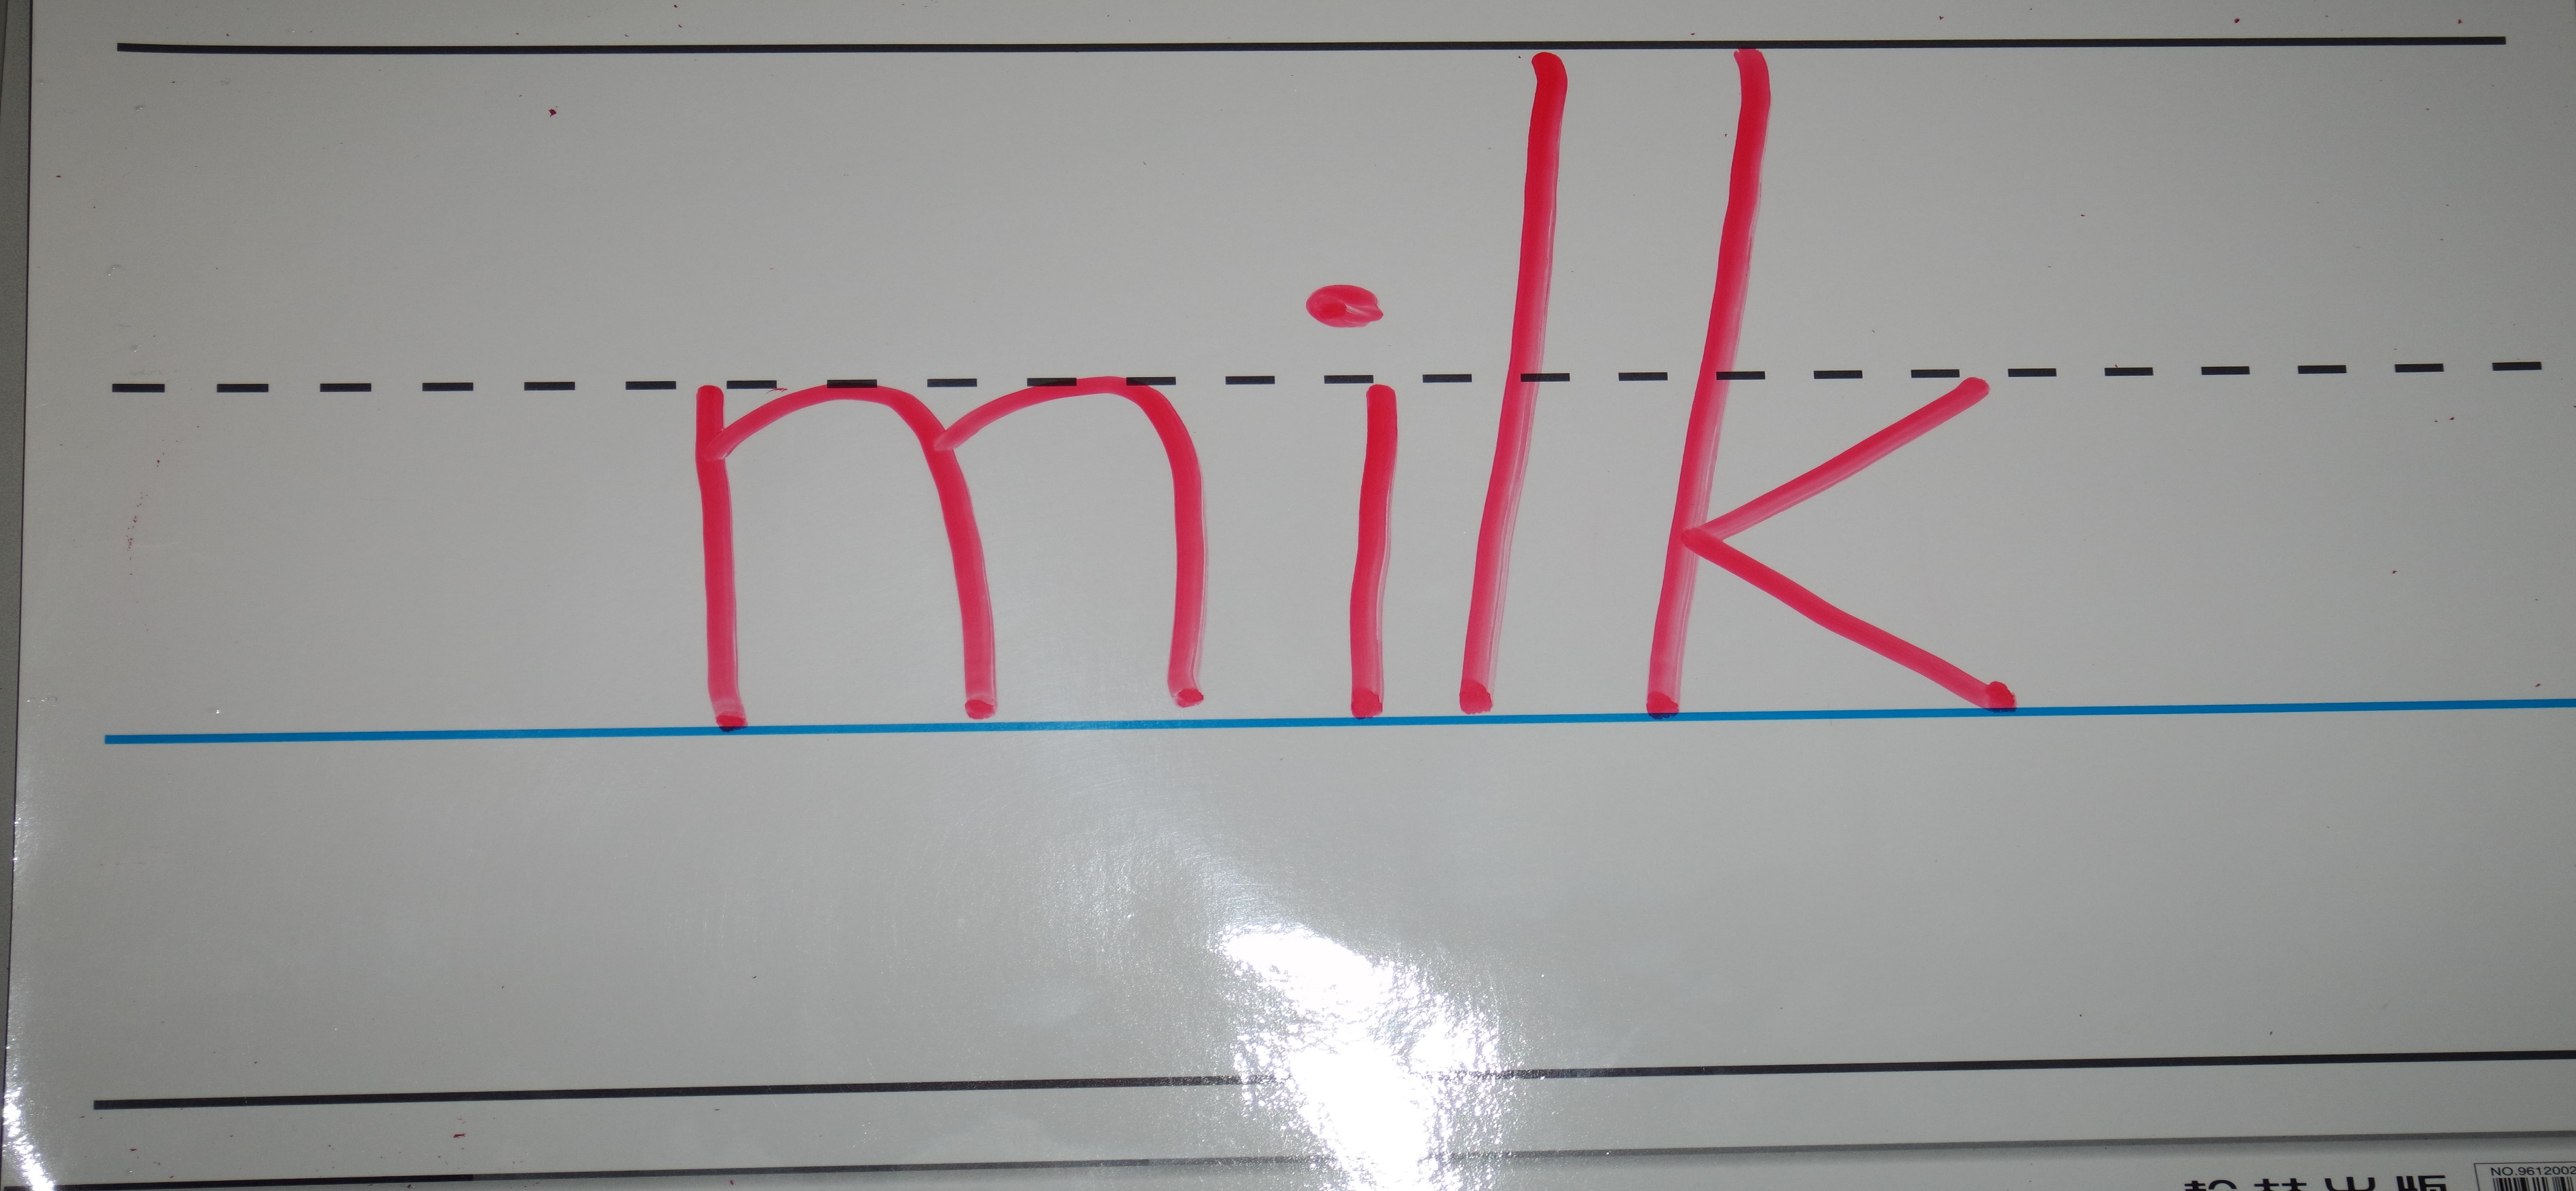 milk
NO.9612002